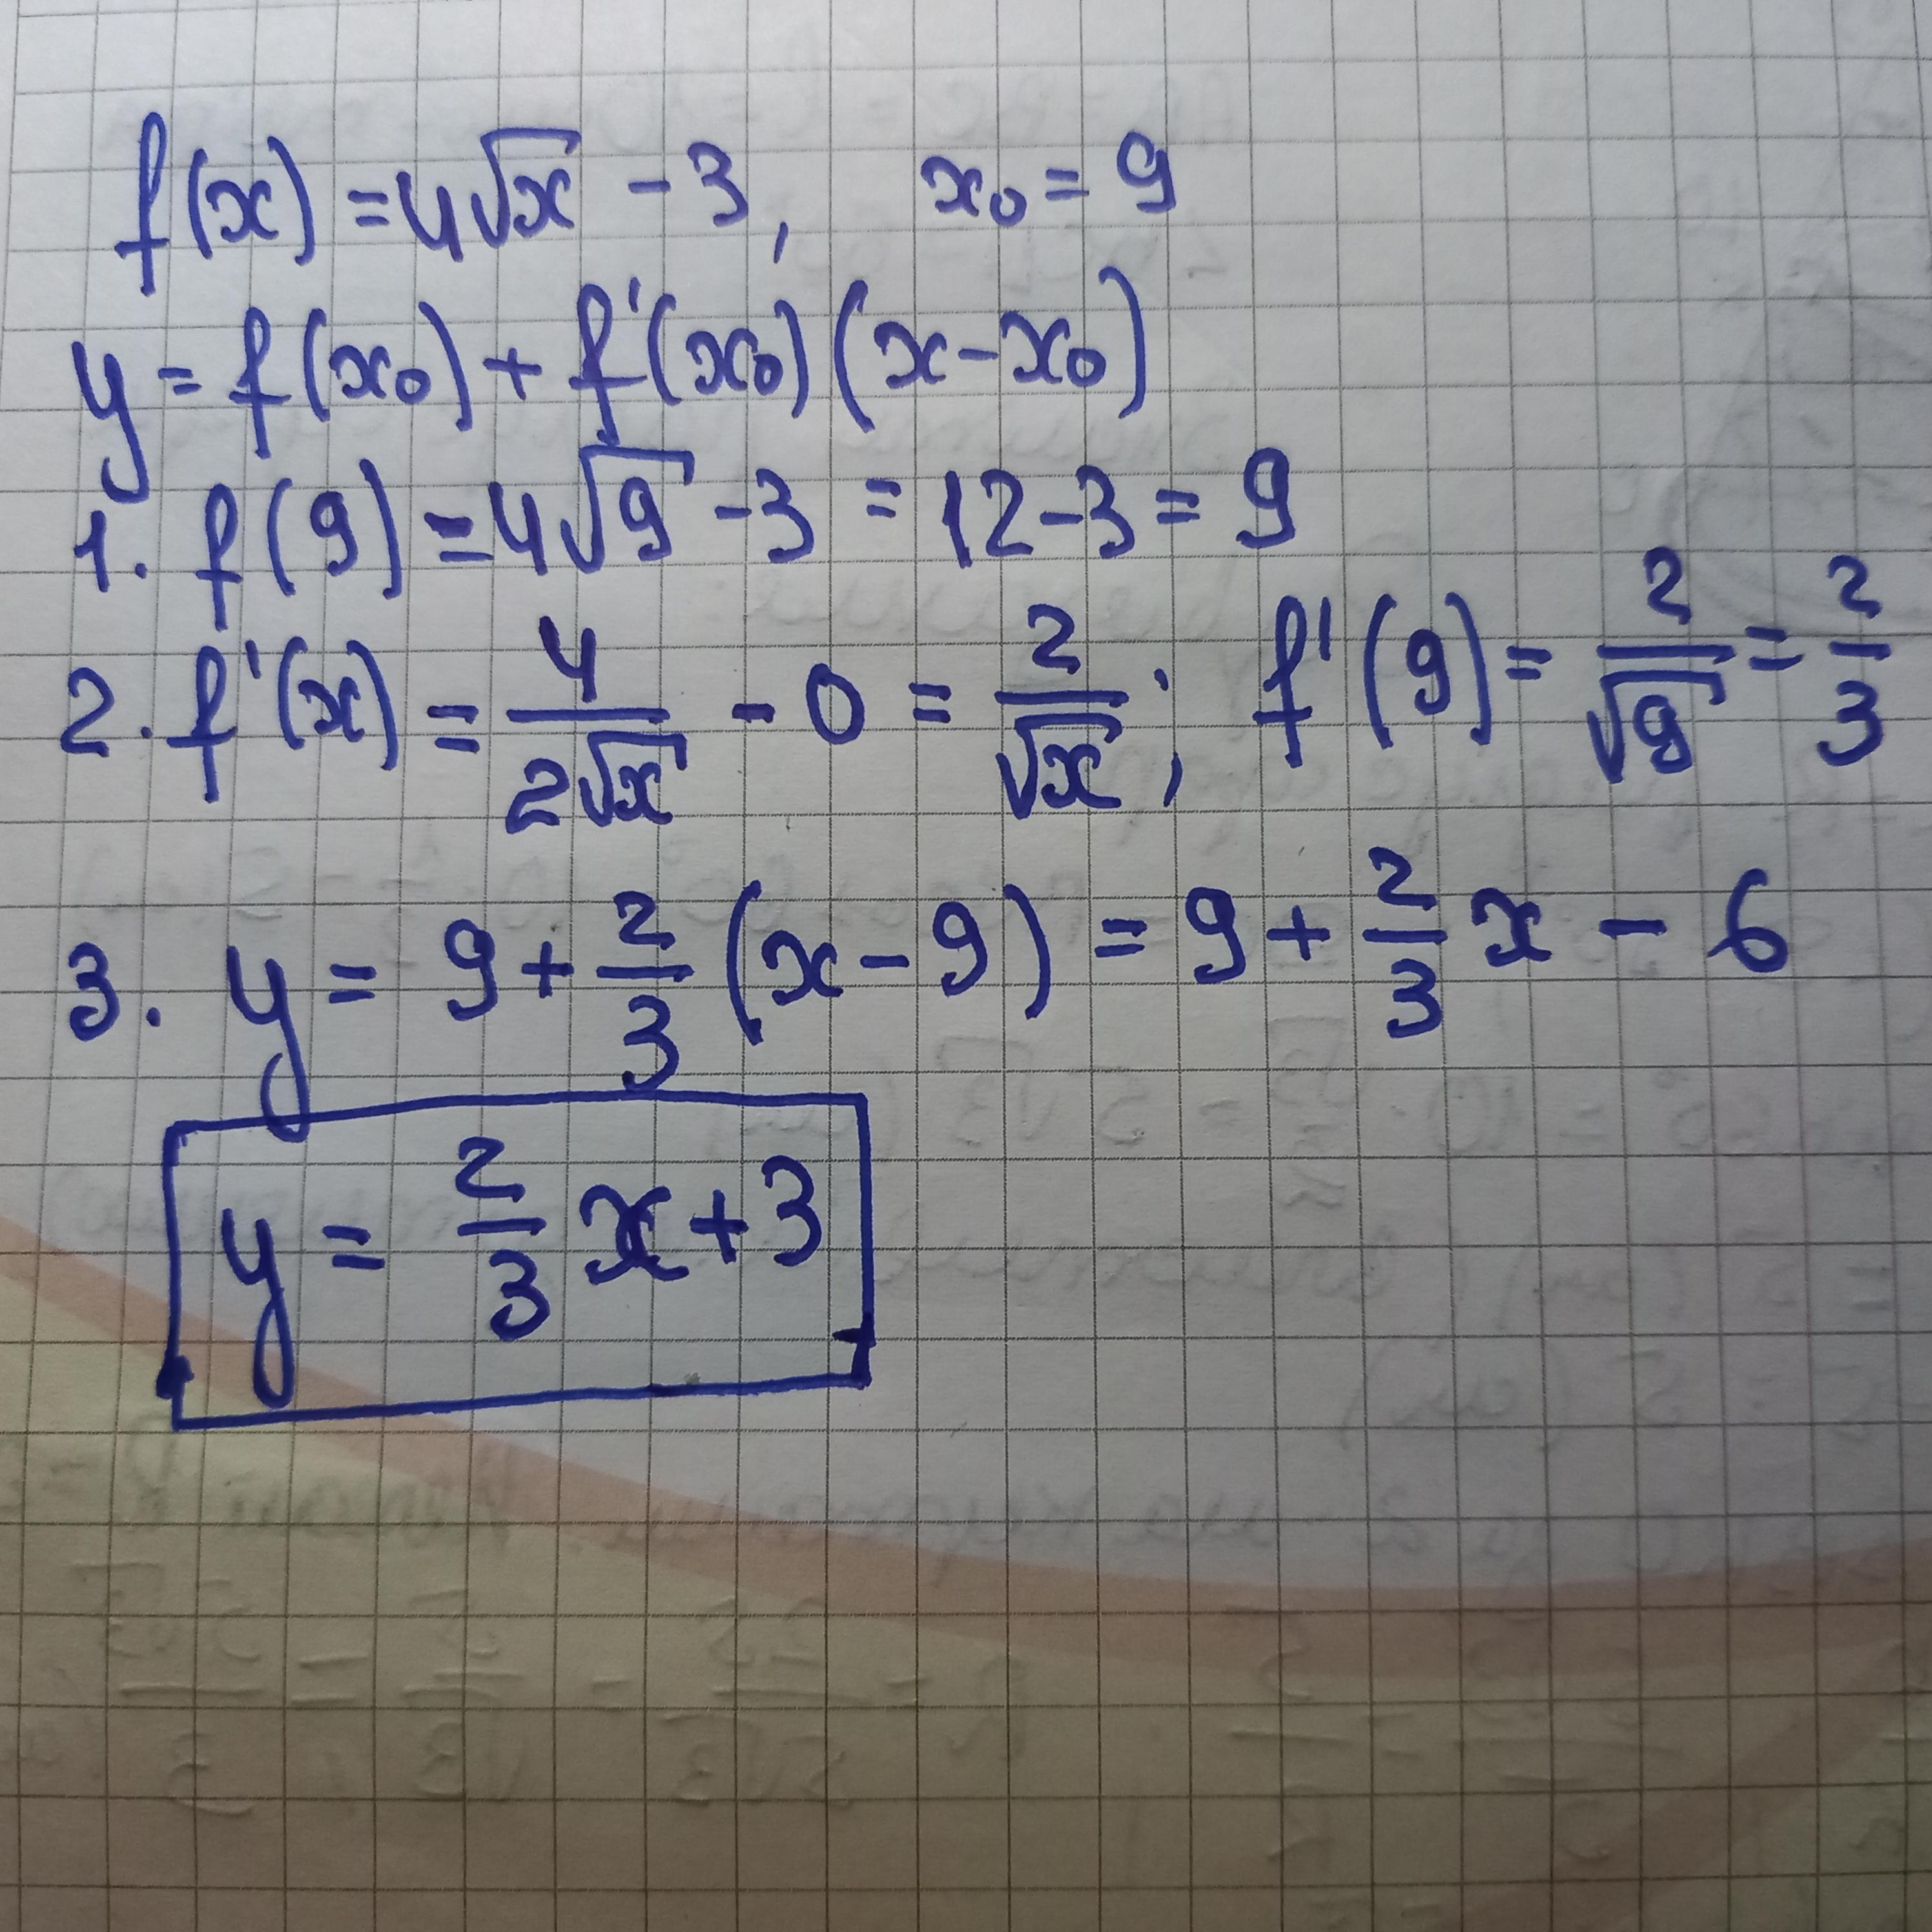 f(x) = 4√x - 3, x₀ = 9
y = f(x₀) + f'(x₀)(x - x₀)
1. f(9) = 4√9 - 3 = 12 - 3 = 9
2. f'(x) = 4/(2√x) - 0 = 2/√x; f'(9) = 2/√9 = 2/3
3. y = 9 + 2/3 (x - 9) = 9 + 2/3 x - 6
y = 2/3 x + 3